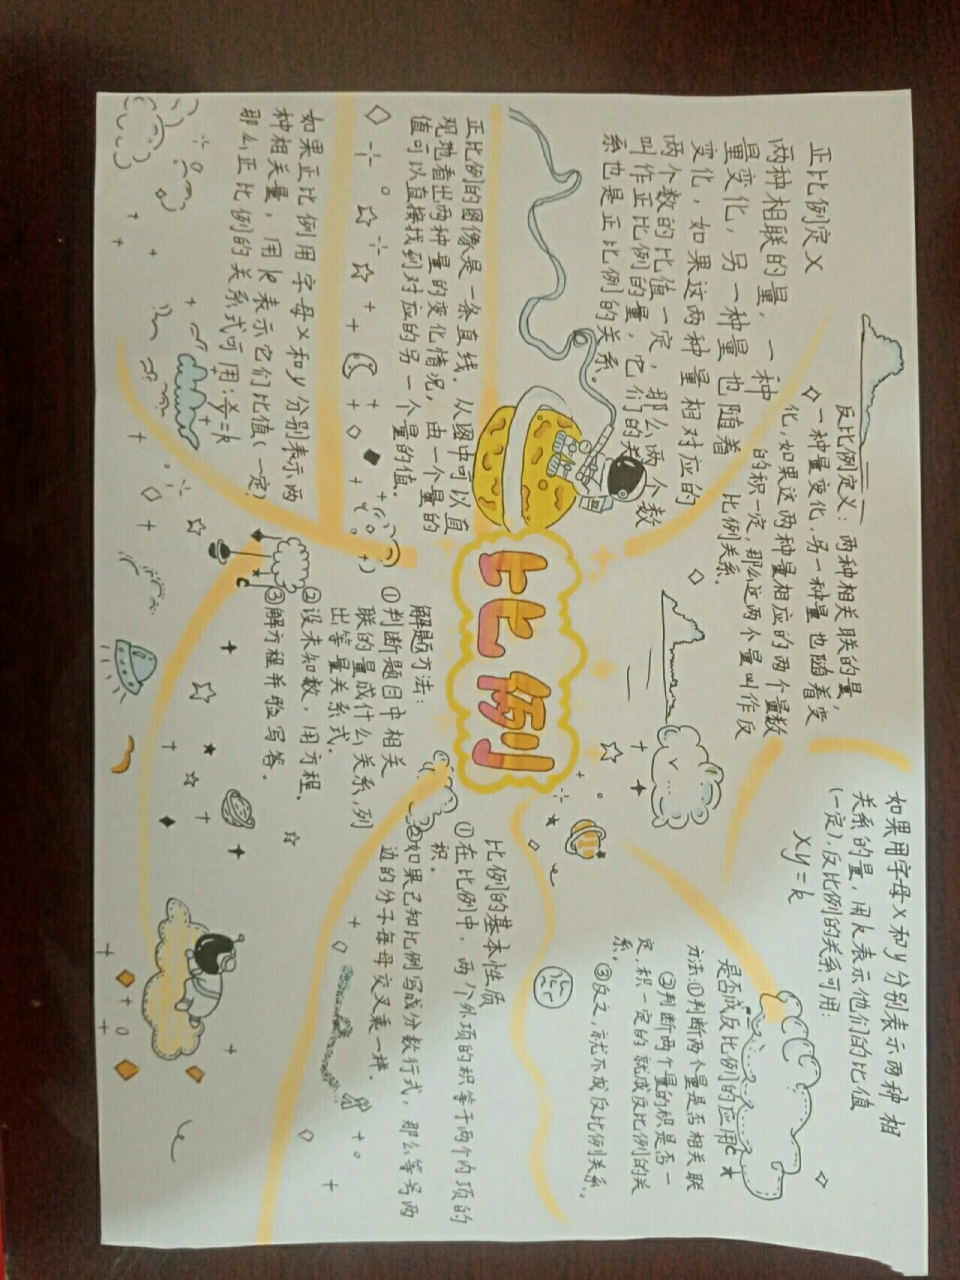 比例
正比例定义
两种相联的量，一种
量变化，另一种量也随着
变化，如果这两种量相对应的
两个数的比值一定，那么两个数
叫作正比例的量，它们的关
系也是正比例的关系。
反比例定义：两种相关联的量，
一种量变化，另一种量也随着变
化，如果这两种量相应的两个量数
的积一定，那么这两个量叫作反
比例关系．
如果用字母x和y分别表示两种相
关系的量，用k表示他们的比值
(一定)，反比例的关系可用：
xy=k
是否成反比例的应用
方法：①判断两个量是否相关联
②判断两个量的积是否一
定，积一定的就成反比例的关
系。
③反之，就不成反比例关系。
正比例的图像是一条直线．从图中可以直
观地看出两种量的变化情况，由一个量的
值可以直接找到对应的另一个量的值．
如果正比例用字母x和y分别表示两
种相关量，用k表示它们比值(一定)
那么正比例的关系式可用：y/x=k
解题方法：
①判断题目中相关
联的量成什么关系，列
出等量关系式．
②设未知数，用方程．
③解方程并验写答．
比例的基本性质
①在比例中，两个外项的积等于两个内项的
积．
②如果已知比例写成分数行式，那么等号两
边的分子每母交叉乘一样．